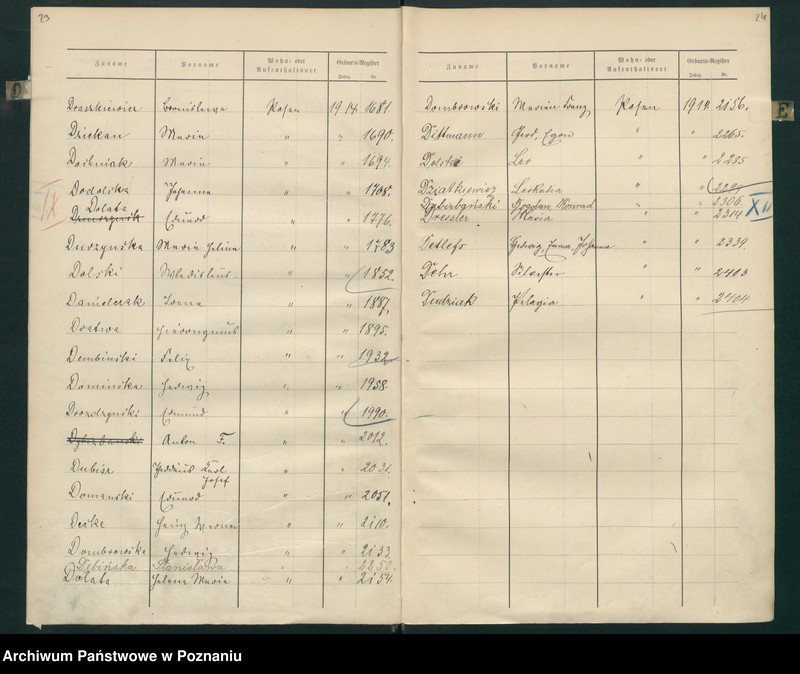 23
Zuname Vorname Wohn- oder Aufenthaltsort Geburts-Register
Jahrg. Nr.
Draszkiewicz Bronislawa Posen 1914 1681.
Dziekan Maria " " 1690.
Dochniak Maria " " 1694.
Dodolska Johanna " " 1708.
IX
Dolata
Eduard " " 1776.
Durzynska Maria Helena " " 1783
Dolski Wladislaus " " 1852.
Danielczak Irena " " 1887.
Dratwa Hieronymus " " 1895.
Dembinski Felix " " 1932
Dominska Hedwig " " 1958.
Drozdzynski Edmund " " 1990.
Anton F. " " 2012.
Dubisz Karl " " 2031.
Josef
Domanski Eduard " " 2051.
Deske Heinz Werner " " 2110.
Dombrowska Hedwig " " 2133.
Dębińska Stanislawa " " 2250.
Dolata Helena Maria " " 2154
D
24
Zuname Vorname Wohn- oder Aufenthaltsort Geburts-Register
Jahrg. Nr.
Dombrowski Marian Franz Posen 1914. 2156.
Dittmann Egon " " 2265.
Dolski Leo " " 2285
Dziatkiewicz Leokadia " " 2291
Bogdan Konrad " " 2306.
Dressler Maria " " 2314
XII
Detlefs Hedwig, Emma, Johanna " " 2339.
Dehr Silvester " " 2403
Dudziak Pelagia " " 2404
E
Archiwum Państwowe w Poznaniu